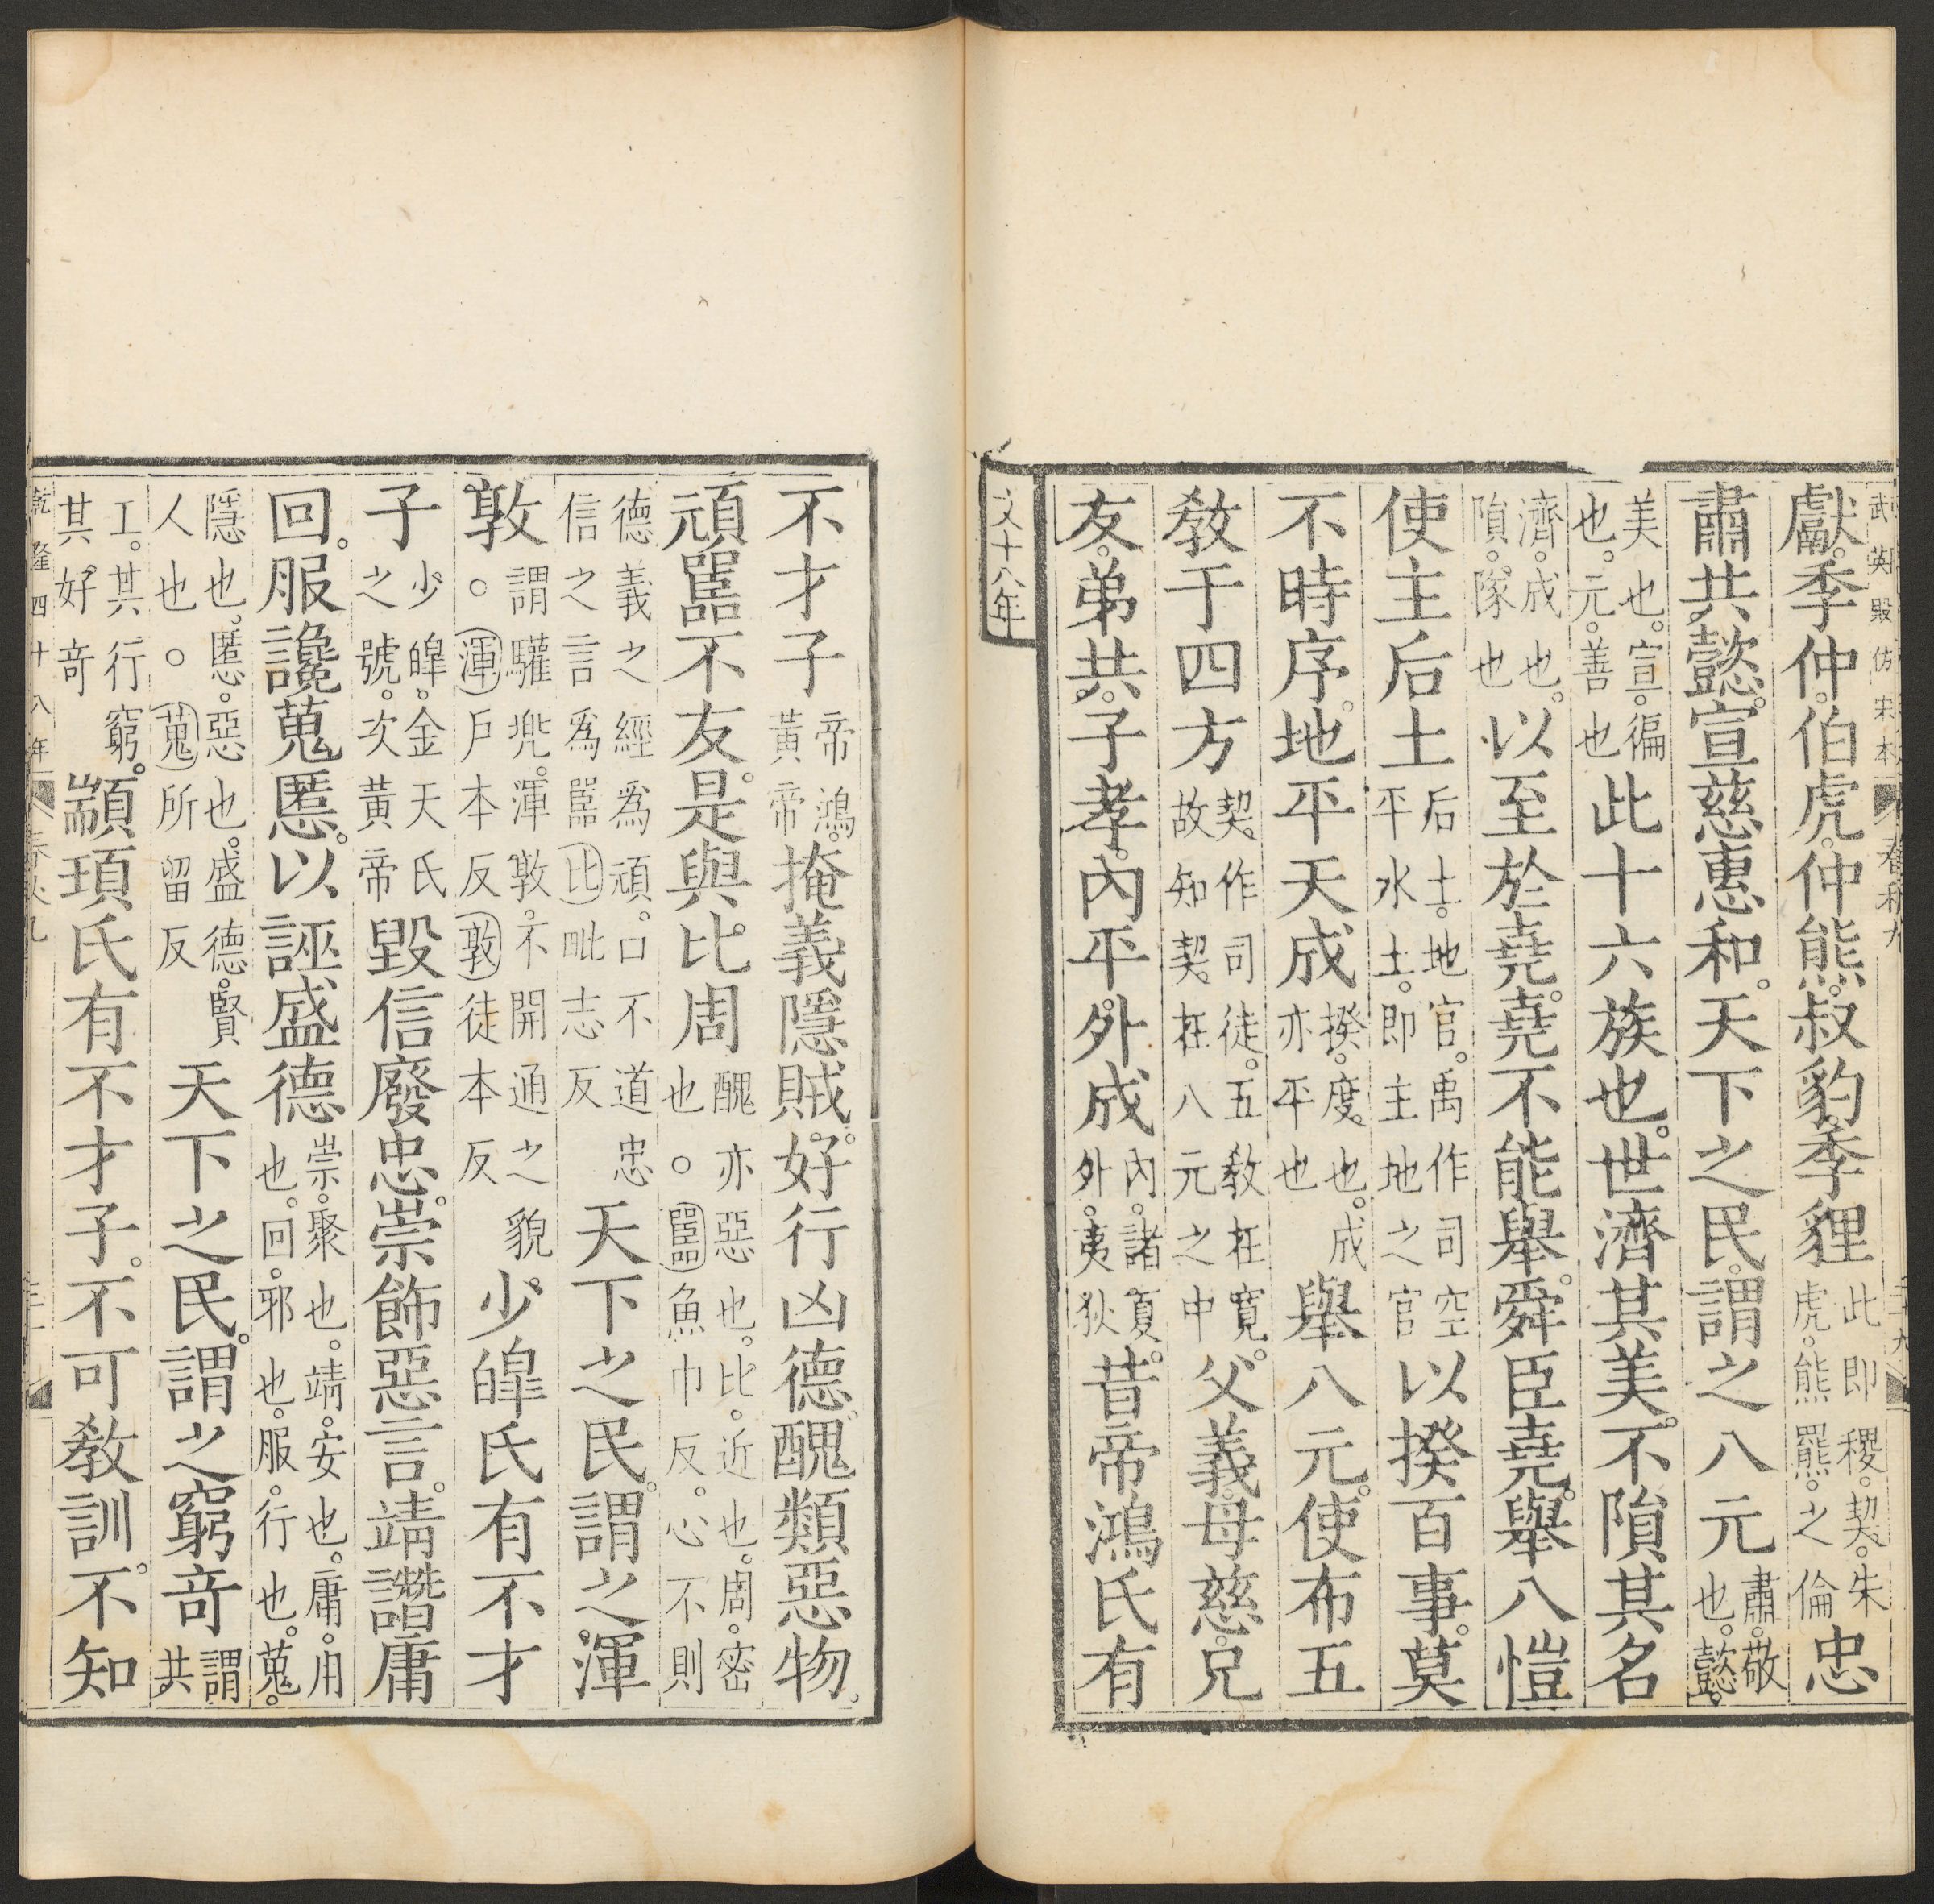 武英殿仿宋本 春秋九 二十九
獻季仲伯虎仲熊叔豹季貍此即稷契朱虎熊羆之倫忠
肅共懿宣慈惠和天下之民謂之八元肅敬也懿
美也宣徧也元善也此十六族也世濟其美不隕其名
濟成也隕隊也以至於堯堯不能舉舜臣堯舉八愷
使主后土后土地官禹作司空平水土即主地之官以揆百事莫
不時序地平天成揆度也成亦平也舉八元使布五
敎于四方契作司徒五敎在寬故知契在八元之中父義母慈兄
友弟共子孝內平外成內諸夏外夷狄昔帝鴻氏有
文十八年
不才子帝鴻黃帝掩義隱賊好行凶德醜類惡物
頑嚚不友是與比周醜亦惡也比近也周密也○嚚魚巾反心不則
德義之經爲頑口不道忠信之言爲嚚比毗志反天下之民謂之渾
敦謂驩兜渾敦不開通之貌○渾戶本反敦徒本反少皥氏有不才
子少皥金天氏之號次黃帝毀信廢忠崇飾惡言靖譖庸
回服讒蒐慝以誣盛德崇聚也靖安也庸用也回邪也服行也蒐
隱也慝惡也盛德賢人也○蒐所留反天下之民謂之窮奇謂共
工其行窮其好奇顓頊氏有不才子不可敎訓不知
乾隆四十八年 春秋九